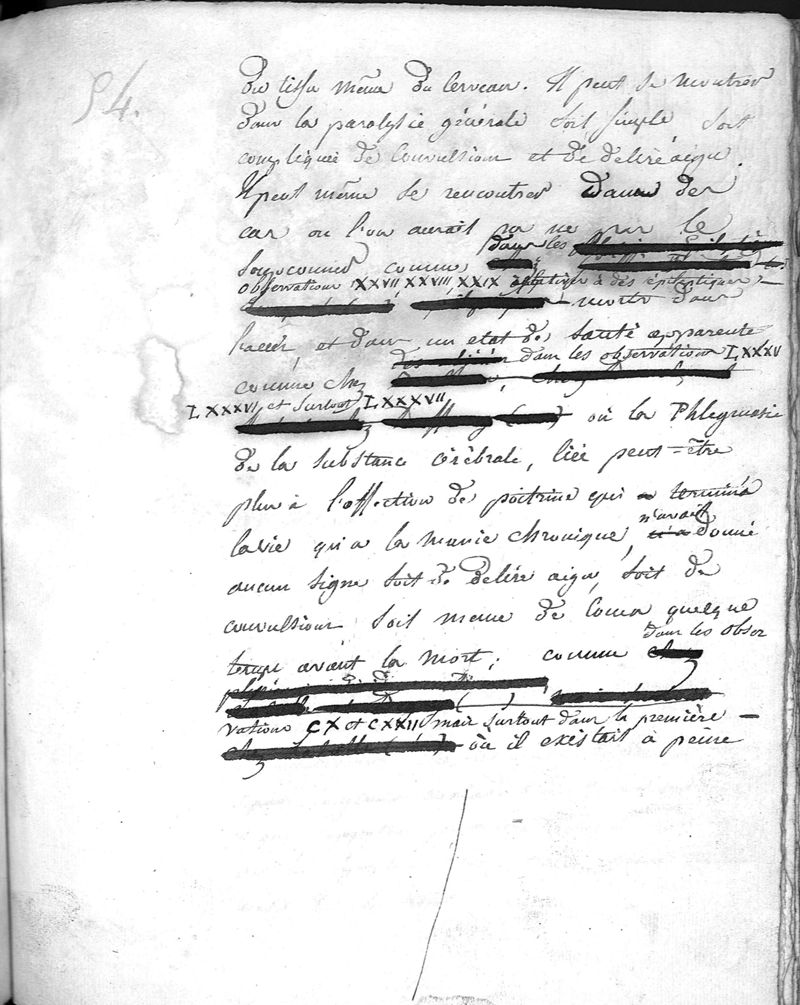 54.
du tissu même du Cerveau. Il peut se montrer
dans la paralysie générale soit simple, soit
compliquée de Convulsions et de delire aigu.
Il peut même se rencontrer dans des
cas ou l'on aurait pu ne pas le
soupconner comme dans les
observations XXVII XXVIII XXIX relatives à des épileptiques
morts dans
l'accès, et dans un etat de santé apparente
comme chez dans les observations LXXXV
LXXXVI et surtout LXXXVII
où la Phlegmasie
de la substance cérébrale, liée peut-être
plus à l'affection de poitrine qui a terminé
la vie qu'a la manie chronique, n'avait donné
aucun signe soit de delire aigu, soit de
convulsions soit meme de Coma quelque
temps avant la mort; comme dans les obser
vations CX et CXXII mais surtout dans la première
où il existait à peine